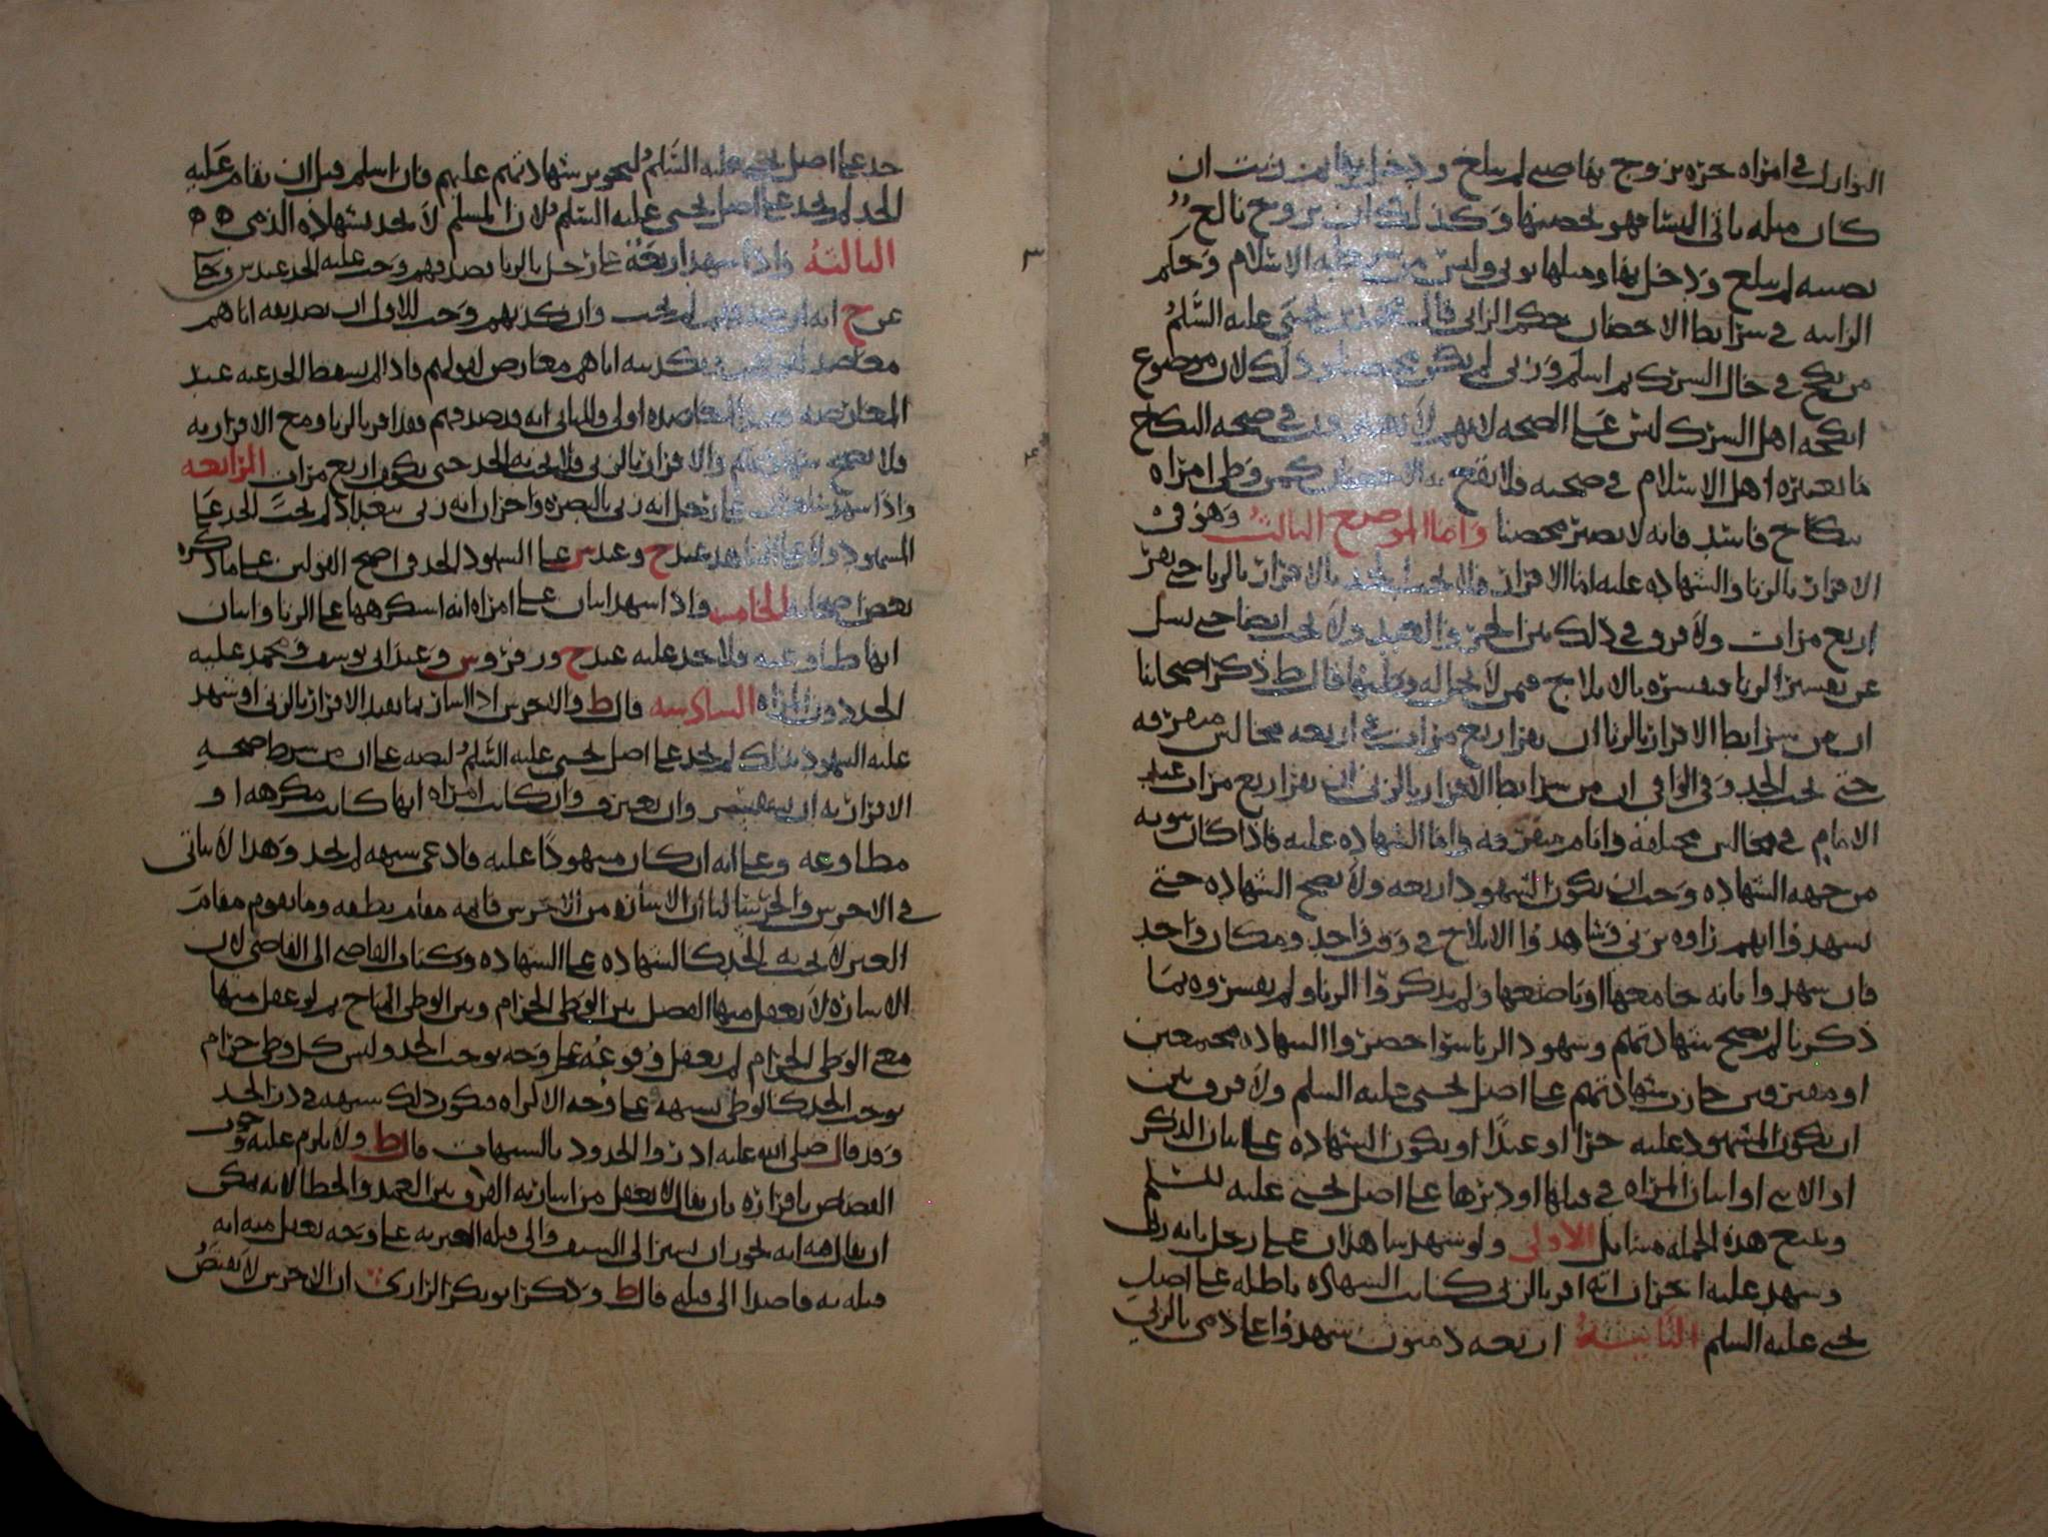 في امراة حرة تزوج بها صبي لم يبلغ ودخل بها ثم زنت ان
كان مثله ياتي النسا فهو يحصنها وكذلك ان تزوج بالغ
بصبية لم تبلغ ودخل بها ومثلها توتى وليس من شرطه الاسلام وحكم
الزانية في شرايط الاحصان حكم الزاني قال محمد بن يحيى عليه السلم
من نكح في حال الشرك ثم اسلم وزنى لم يكن محصنا وذلك لان موضوع
انكحة اهل الشرك ليس على الصحة لانهم لا يعتبرون في صحة النكاح
ما يعتبره اهل الاسلام في صحته فلا يقع به الاحصان كمن وطى امراة
بنكاح فاسد فانه لا يصير محصنا واما الموضع الثالث وهو في
الاقرار بالزنا والشهادة عليه اما الاقرار فلا يجب الحد بالاقرار بالزنا حتى يقر
اربع مرات ولا فرق في ذلك بين الحر والعبد ولا يجب ايضا حتى يسل
عن تفسير الزنا فيفسره بالايلاج فيمن لا يحل له وطيها قال ط ذكر اصحابنا
ان من شرايط الاقرار بالزنا ان يقر اربع مرات في اربعة مجالس متفرقة
حتى يجب الحد وفي الوافي ان من شرايط الاقرار بالزنى ان يقر اربع مرات عند
الامام في مجالس مختلفة وايام متفرقة واما الشهادة عليه فاذا كان ثبوته
من جهة الشهادة وجب ان يكون الشهود اربعة ولا يصح الشهادة حتى
يشهدوا انهم راوه يزني وشاهدوا الايلاج في وقت واحد ومكان واحد
فان شهدوا بانه جامعها او باضعها ولم يذكروا الزنا ولم يفسروه بما
ذكرنا لم يصح شهادتهم وشهود الزنا سوا حضروا الشهادة مجتمعين
او مفترقين جازت شهادتهم على اصل يحيى عليه السلم ولا فرق بين
ان يكون المشهود عليه حرا او عبدا او يكون الشهادة على اتيان الذكر
او الانثى او اتيان المراة في قبلها او دبرها على اصل يحيى عليه السلم
ويتبع هذه الجملة مسايل الاولى ولو شهد شاهدان على رجل بانه زنى
وشهد عليه اخران انه اقر بالزنى كانت الشهادة باطلة على اصل
يحيى عليه السلم الثانية اربعة ذميون شهدوا على ذمي بالزنى
حد على اصل يحيى عليه السلم لتجويز شهادتهم عليهم فان اسلم قبل ان يقام عليه
الحد لم يحد على اصل يحيى عليه السلم لان المسلم لا يحد بشهادة الذمي
الثالثة واذا شهد اربعة على رجل بالزنا بصدقهم وجب عليه الحد عند س وحكا
عن ح انه ان صدقهم لم يجب وان كذبهم وجب للاول ان تصديقه اياهم
معاضد وتكذيبه اياهم معارض لقولهم فاذا لم يسقط الحد عنه عند
المعارضة فعند المعاضدة اولى وللثاني انه قد صدقهم فقد اقر بالزنا ومع الاقرار به
فلا تصح شهادتهم والاقرار بالزنى فلا يجب به الحد حتى يكون اربع مرات الرابعة
واذا شهد شاهدان على رجل انه زنى بالبصرة واخران انه زنى ببغداد لم يجب الحد على
المشهود ولا على الشاهد عند ح وعند س على الشهود الحد في اصح القولين على ما ذكره
بعض اصحابه الخامسة واذا شهد اثنان على امراة انه استكرهها على الزنا واثنان
انها طاوعته فلا حد عليه عند ح وزفر وس وعند ابي يوسف ومحمد عليه
الحد دون المراة السادسة قال ط والاخرس اذا اشار بما يفيد الاقرار بالزنى او شهد
عليه الشهود بذلك لم يحد على اصل يحيى عليه السلم لنصه على ان من شرط صحة
الاقرار به ان يستفسر وان يعترف وان كانت امراة انها كانت مكرهة او
مطاوعة وعلى انه ان كان مشهودا عليه فادعى شبهة لم يحد وهذا لا يتاتى
في الاخرس والخرسا لنا ان الاشارة من الاخرس قايمة مقام نطقه وما يقوم مقام
الغير لا يجب به الحد كالشهادة على الشهادة وكتاب القاضي الى القاضي لان
الاشارة لا يعقل منها الفصل بين الوطى الحرام وبين الوطى المباح ثم لو عقل منها
معنى الوطى الحرام لم يعقل وقوعه على وجه يوجب الحد وليس كل وطى حرام
يوجب الحد كالوطى بشبهة على وجه الاكراه فيكون ذلك شبهة في درء الحد
وقد قال صلى الله عليه ادرؤا الحدود بالشبهات قال ط ولا يلزم عليه وجوب
القصاص باقراره بان يقال لا يعقل من اشارته الفرق بين العمد والخطا لانه يمكن
ان يقال له انه يجوز ان يشير الى السيف والى قتله الغير به على وجه يعقل منه انه
قتله به قاصدا الى قتله قال ط وذكر ابو بكر الرازي ان الاخرس لا يقتص